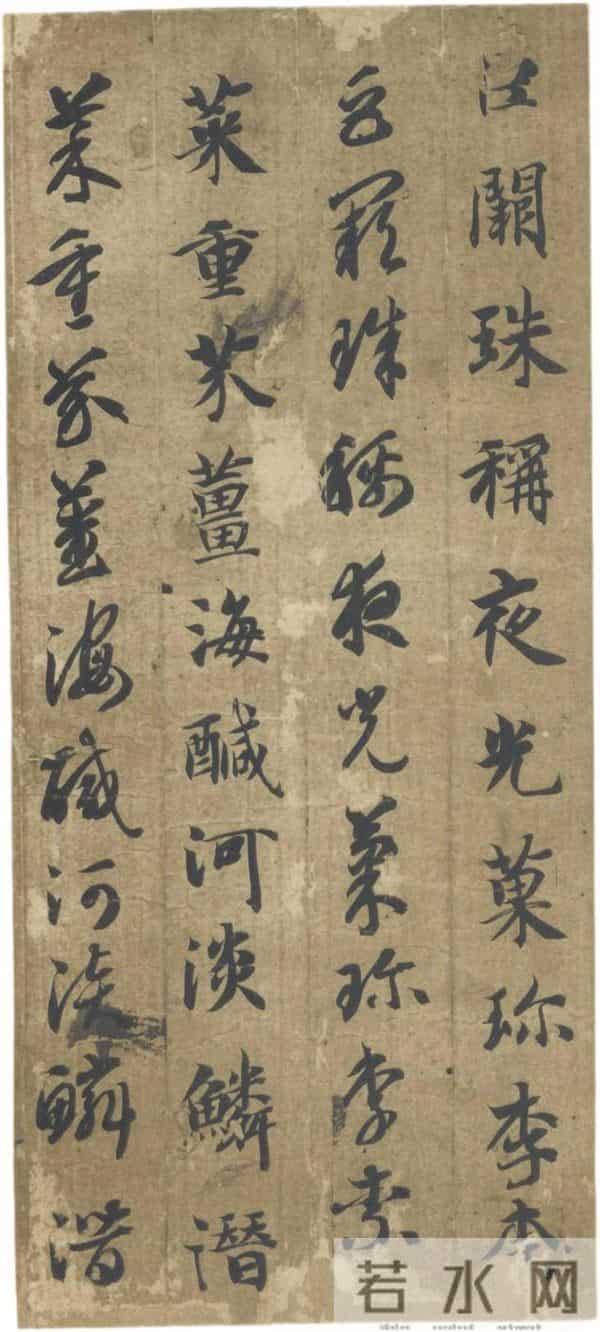 巨闕珠稱夜光菓珍李柰
巨闕珠稱夜光菓珍李柰
菜重芥薑海醎河淡鱗潛
菜重芥薑海醎河淡鱗潛
若水网